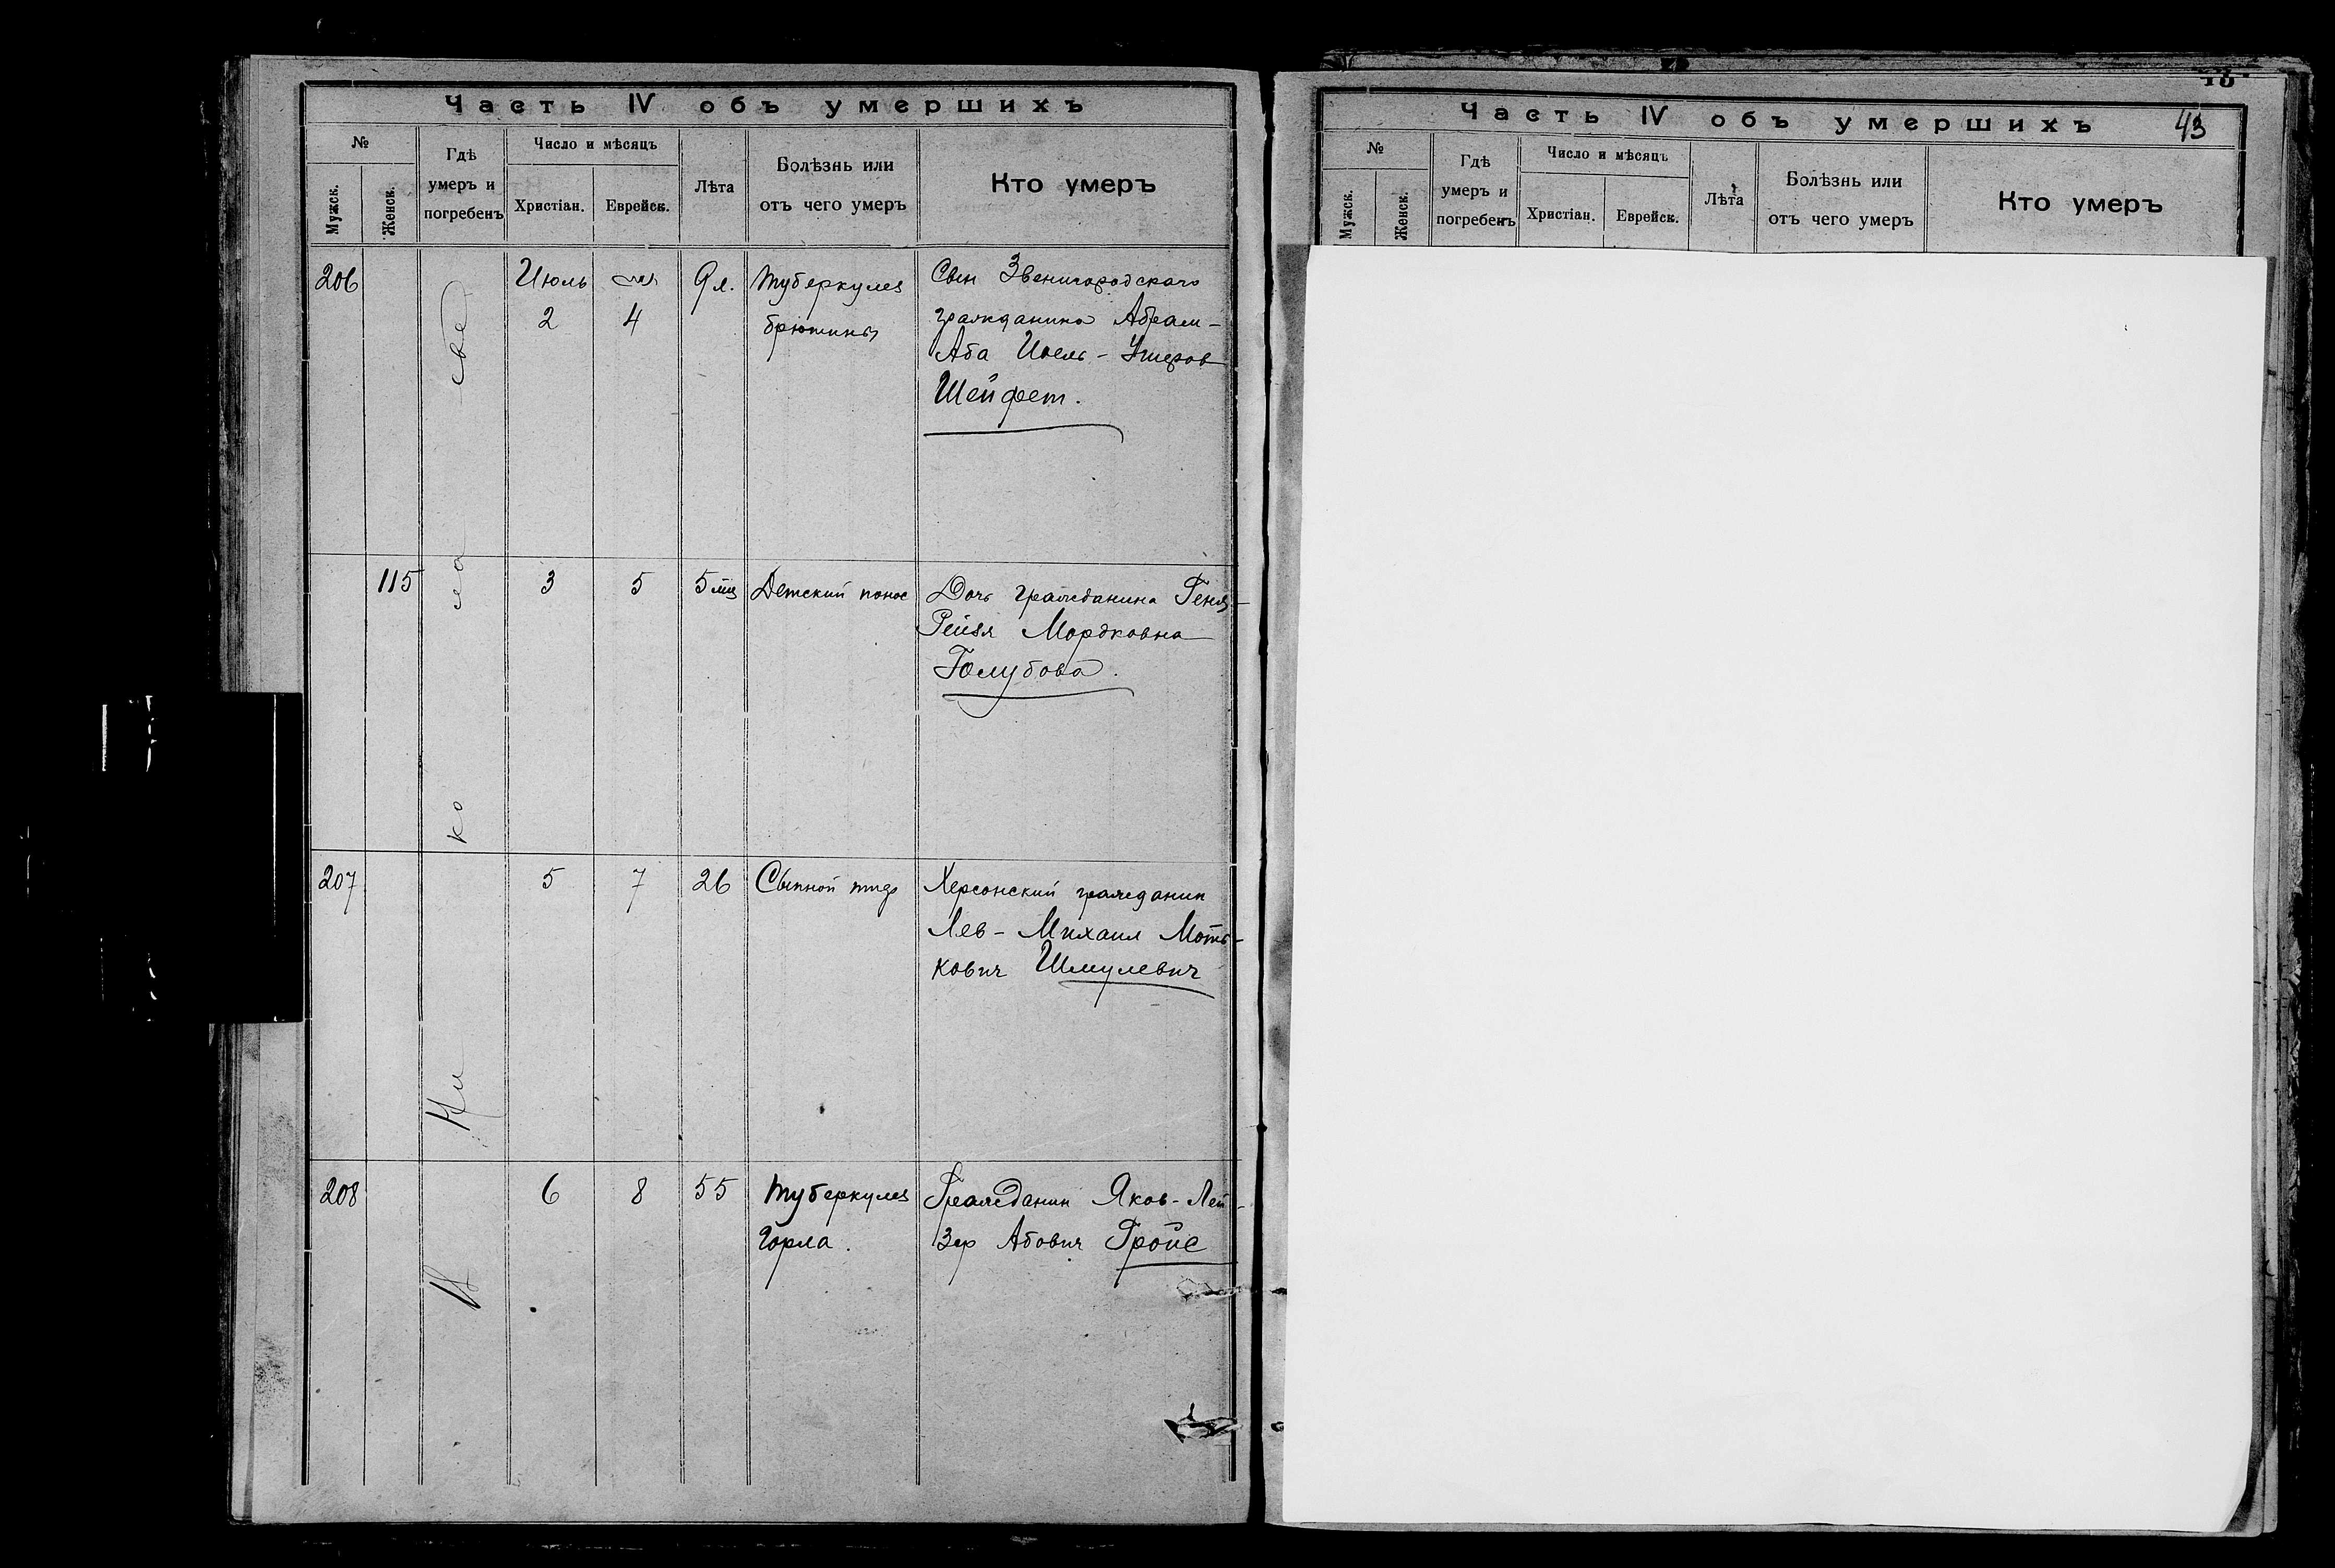 Часть IV объ умершихъ
№
Мужск.
Женск.
Гдѣ умеръ и погребенъ
Число и мѣсяцъ
Христіан.
Еврейск.
Лѣта
Болѣзнь или отъ чего умеръ
Кто умеръ
206
Июль
2
4
9 л.
Туберкулез
брюшины
Сын Звенигородскаго
гражданина Абрам-
Аба Иоель-Ушеров
Шейфет.
115
3
5
5 мц
Детский понос
Дочь гражданина Геня-
Рейзя Мордковна
Голубова.
207
5
7
26
Сыпной тиф
Херсонский гражданин
Лев-Михаил Моть-
кович Шмулевич
208
6
8
55
Туберкулез
горла.
Гражданин Яков-Лей-
зер Абович Гройс
Николаеве
В
Часть IV объ умершихъ
43
№
Мужск.
Женск.
Гдѣ умеръ и погребенъ
Число и мѣсяцъ
Христіан.
Еврейск.
Лѣта
Болѣзнь или отъ чего умеръ
Кто умеръ